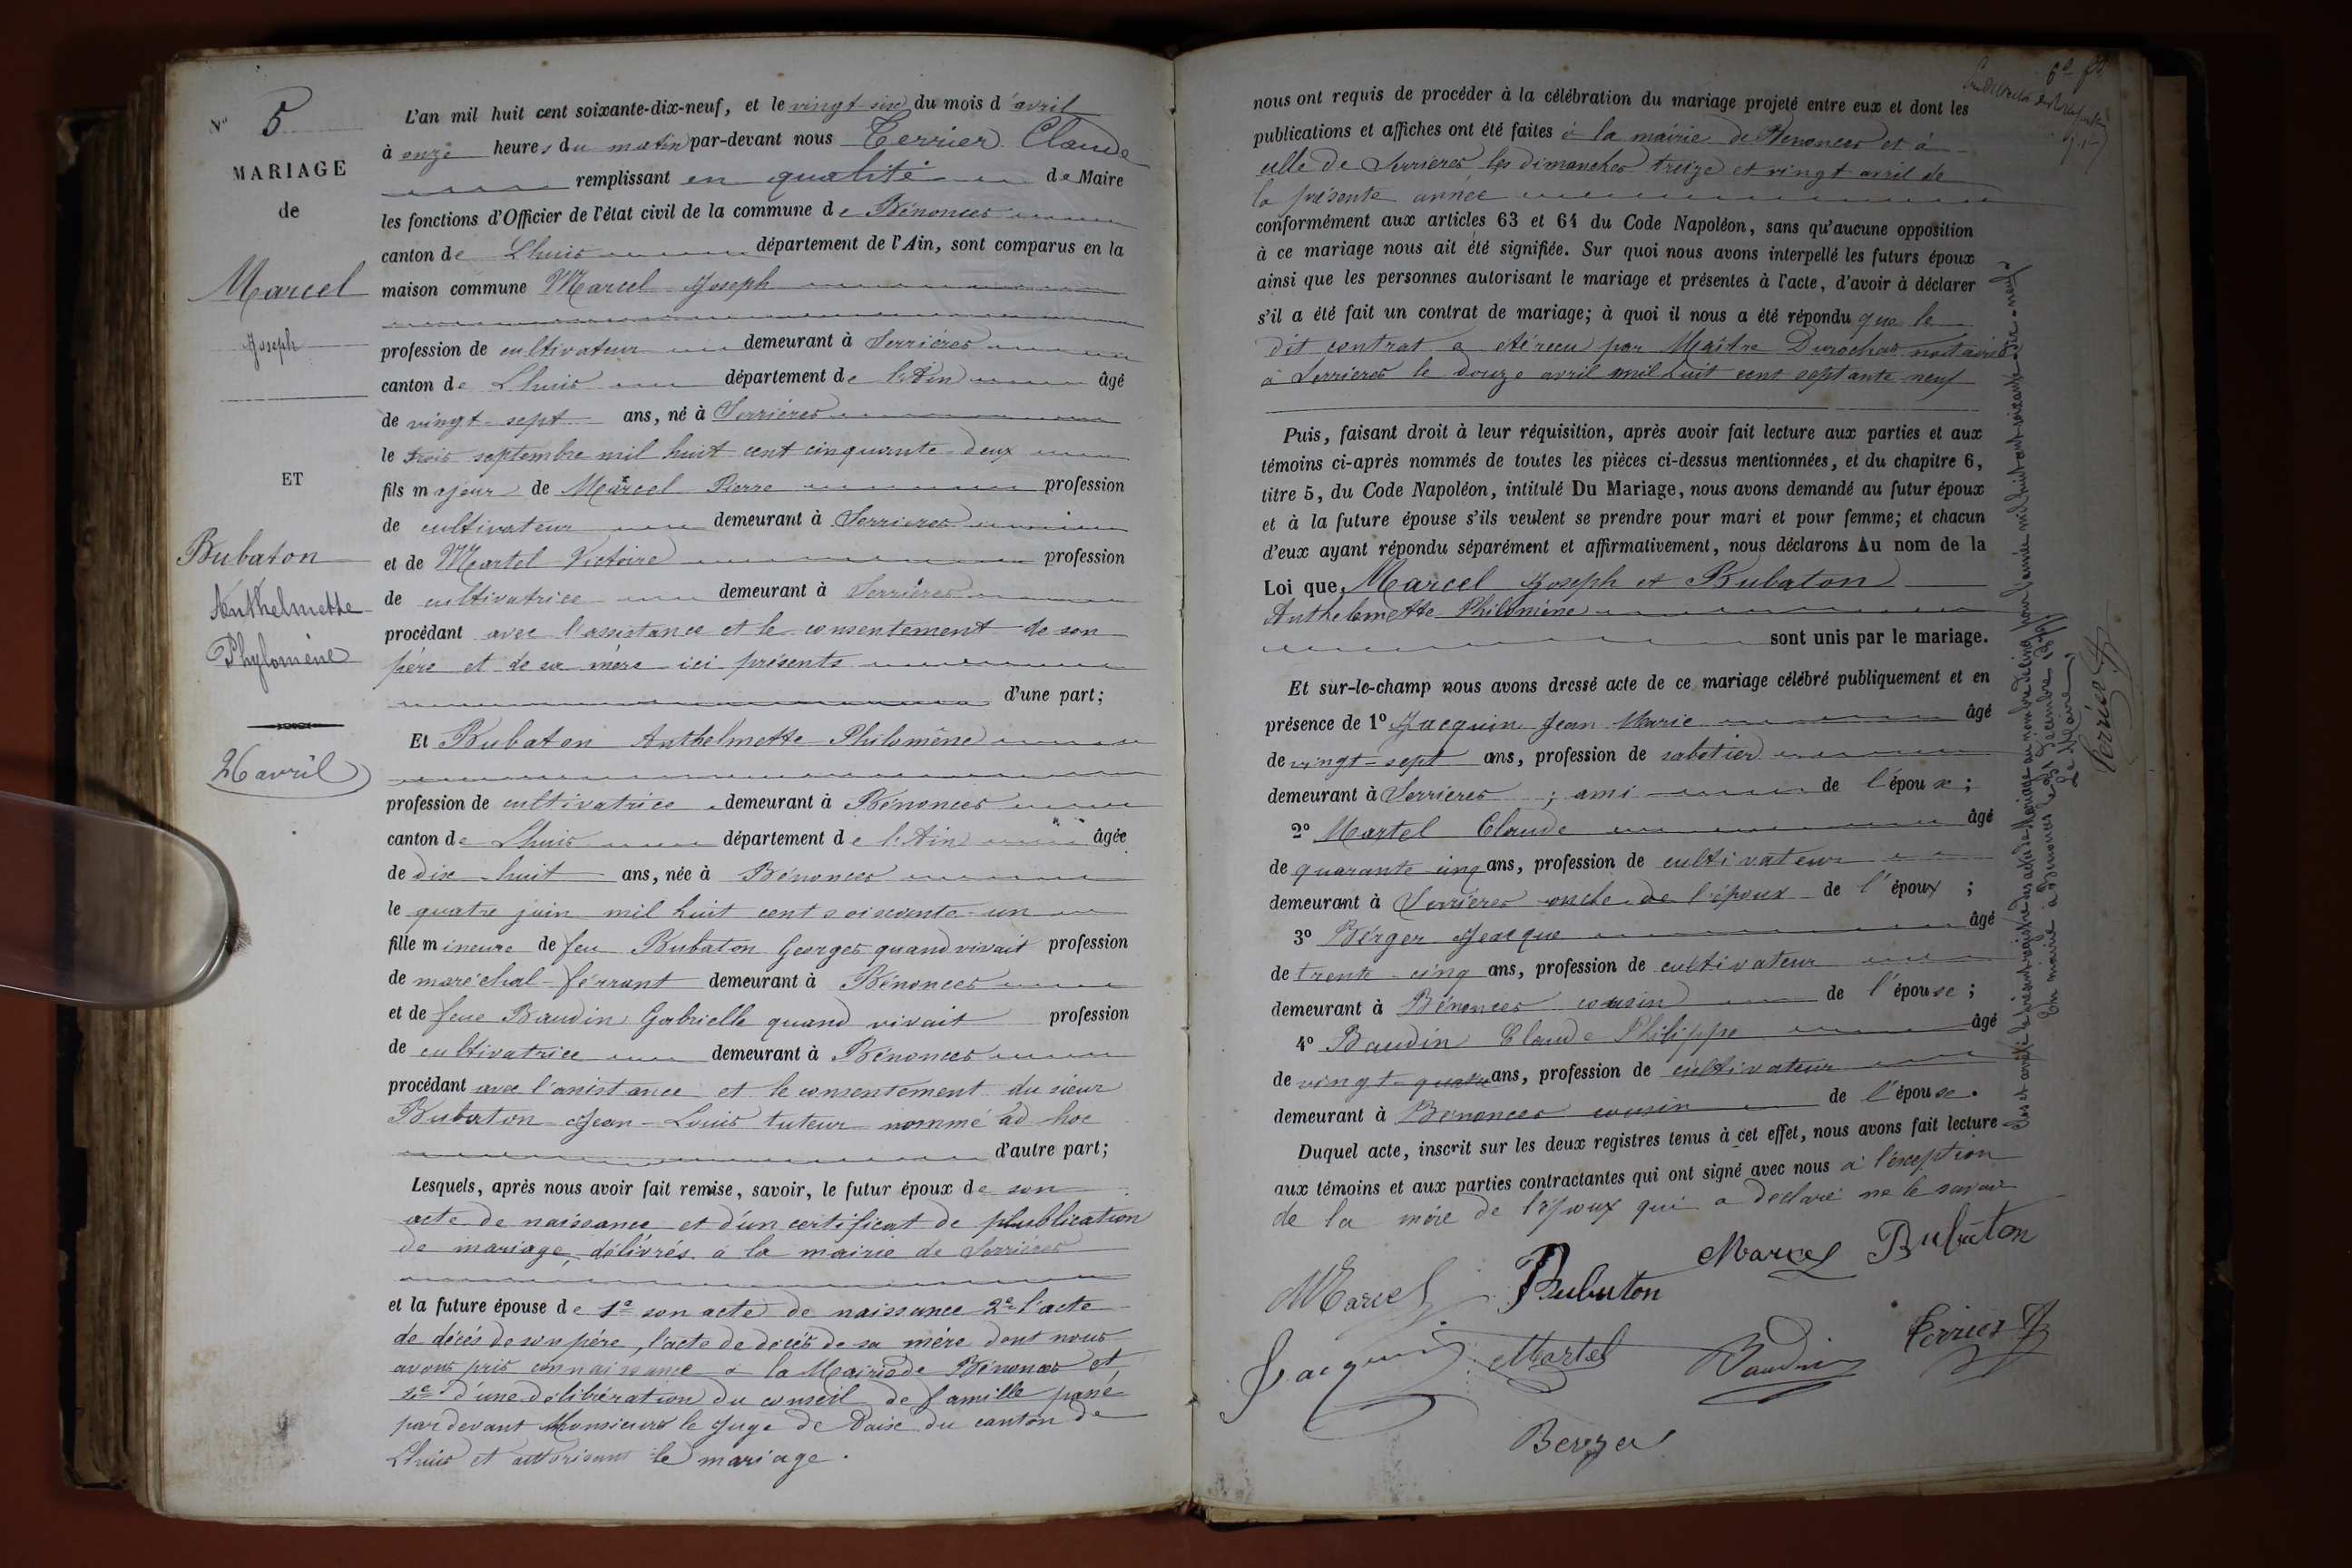 N° 5
MARIAGE
de
Marcel
Joseph
ET
Bubaton
Anthelmette
Phylomène
26 avril
L'an mil huit cent soixante-dix-neuf, et le vingt-six du mois d'avril
à onze heures du matin par-devant nous Terrier Claude
remplissant en qualité de Maire
les fonctions d'Officier de l'état civil de la commune de Bénonces
canton de Lhuis département de l'Ain, sont comparus en la
maison commune Marcel Joseph
profession de cultivateur demeurant à Serrières
canton de Lhuis département de l'Ain âgé
de vingt-sept ans, né à Serrières
le trois septembre mil huit cent cinquante-deux
fils majeur de Marcel Pierre profession
de cultivateur demeurant à Serrieres
et de Martel Victoire profession
de cultivatrice demeurant à Serrières
procédant avec l'assistance et le consentement de son
père et de sa mère ici présents
d'une part;
Et Bubaton Anthelmette Philomène
profession de cultivatrice demeurant à Bénonces
canton de Lhuis département de l'Ain âgée
de dix-huit ans, née à Bénonces
le quatre juin mil huit cent soixante-un
fille mineure de feu Bubaton Georges quand vivait profession
de maréchal-férrant demeurant à Bénonces
et de feue Baudin Gabrielle quand vivait profession
de cultivatrice demeurant à Bénonces
procédant avec l'assistance et le consentement du sieur
Bubaton Jean-Louis tuteur nommé ad hoc
d'autre part;
Lesquels, après nous avoir fait remise, savoir, le futur époux de son
acte de naissance et d'un certificat de plublication
de mariage, délivrés à la mairie de Serrières
et la future épouse de 1° son acte de naissance 2° l'acte
de décés de son père, l'acte de décés de sa mère dont nous
avons pris connaissance à la Mairie de Bénonces et
4° d'une délibération du conseil de famille passé
par devant Monsieur le Juge de Paix du canton de
Lhuis et autorisant le mariage.
nous ont requis de procéder à la célébration du mariage projeté entre eux et dont les
publications et affiches ont été faites à la mairie de Bénonces et à
celle de Serrieres, les dimanches treize et vingt avril de
la présente année
conformément aux articles 63 et 64 du Code Napoléon, sans qu'aucune opposition
à ce mariage nous ait été signifiée. Sur quoi nous avons interpellé les futurs époux
ainsi que les personnes autorisant le mariage et présentes à l'acte, d'avoir à déclarer
s'il a été fait un contrat de mariage; à quoi il nous a été répondu que le
dit contrat a été reçu par Maître Durochas notaire
à Serrieres le douze avril mil huit cent septante neuf
Puis, faisant droit à leur réquisition, après avoir fait lecture aux parties et aux
témoins ci-après nommés de toutes les pièces ci-dessus mentionnées, et du chapitre 6,
titre 5, du Code Napoléon, intitulé Du Mariage, nous avons demandé au futur époux
et à la future épouse s'ils veulent se prendre pour mari et pour femme; et chacun
d'eux ayant répondu séparément et affirmativement, nous déclarons Au nom de la
Loi que, Marcel Joseph et Bubaton
Anthelmette Philomène
sont unis par le mariage.
Et sur-le-champ nous avons dressé acte de ce mariage célébré publiquement et en
présence de 1° Jacquin Jean Marie âgé
de vingt-sept ans, profession de sabotier
demeurant à Serrieres; ami de l'époux;
2° Martel Claude âgé
de quarante cinq ans, profession de cultivateur
demeurant à Serrieres oncle de l'époux de l'époux;
3° Bérger Jacque âgé
de trente-cinq ans, profession de cultivateur
demeurant à Bénonces cousin de l'épouse;
4° Baudin Claude Philippe âgé
de vingt-quatre ans, profession de cultivateur
demeurant à Bénonces cousin de l'épouse.
Duquel acte, inscrit sur les deux registres tenus à cet effet, nous avons fait lecture
aux témoins et aux parties contractantes qui ont signé avec nous à l'exception
de la mère de l'époux qui a declaré ne le savoir
Marcel Bubaton Marcel Bubaton
Jacquin Martel Baudin Terrier
Berger
Clos et arrêté le présent registre des actes de Mariage au nombre de cinq pour l'année mil huit cent soixante-dix-neuf
En mairie à Bénonces le 31 Decembre 1879
Le Maire,
Terrier